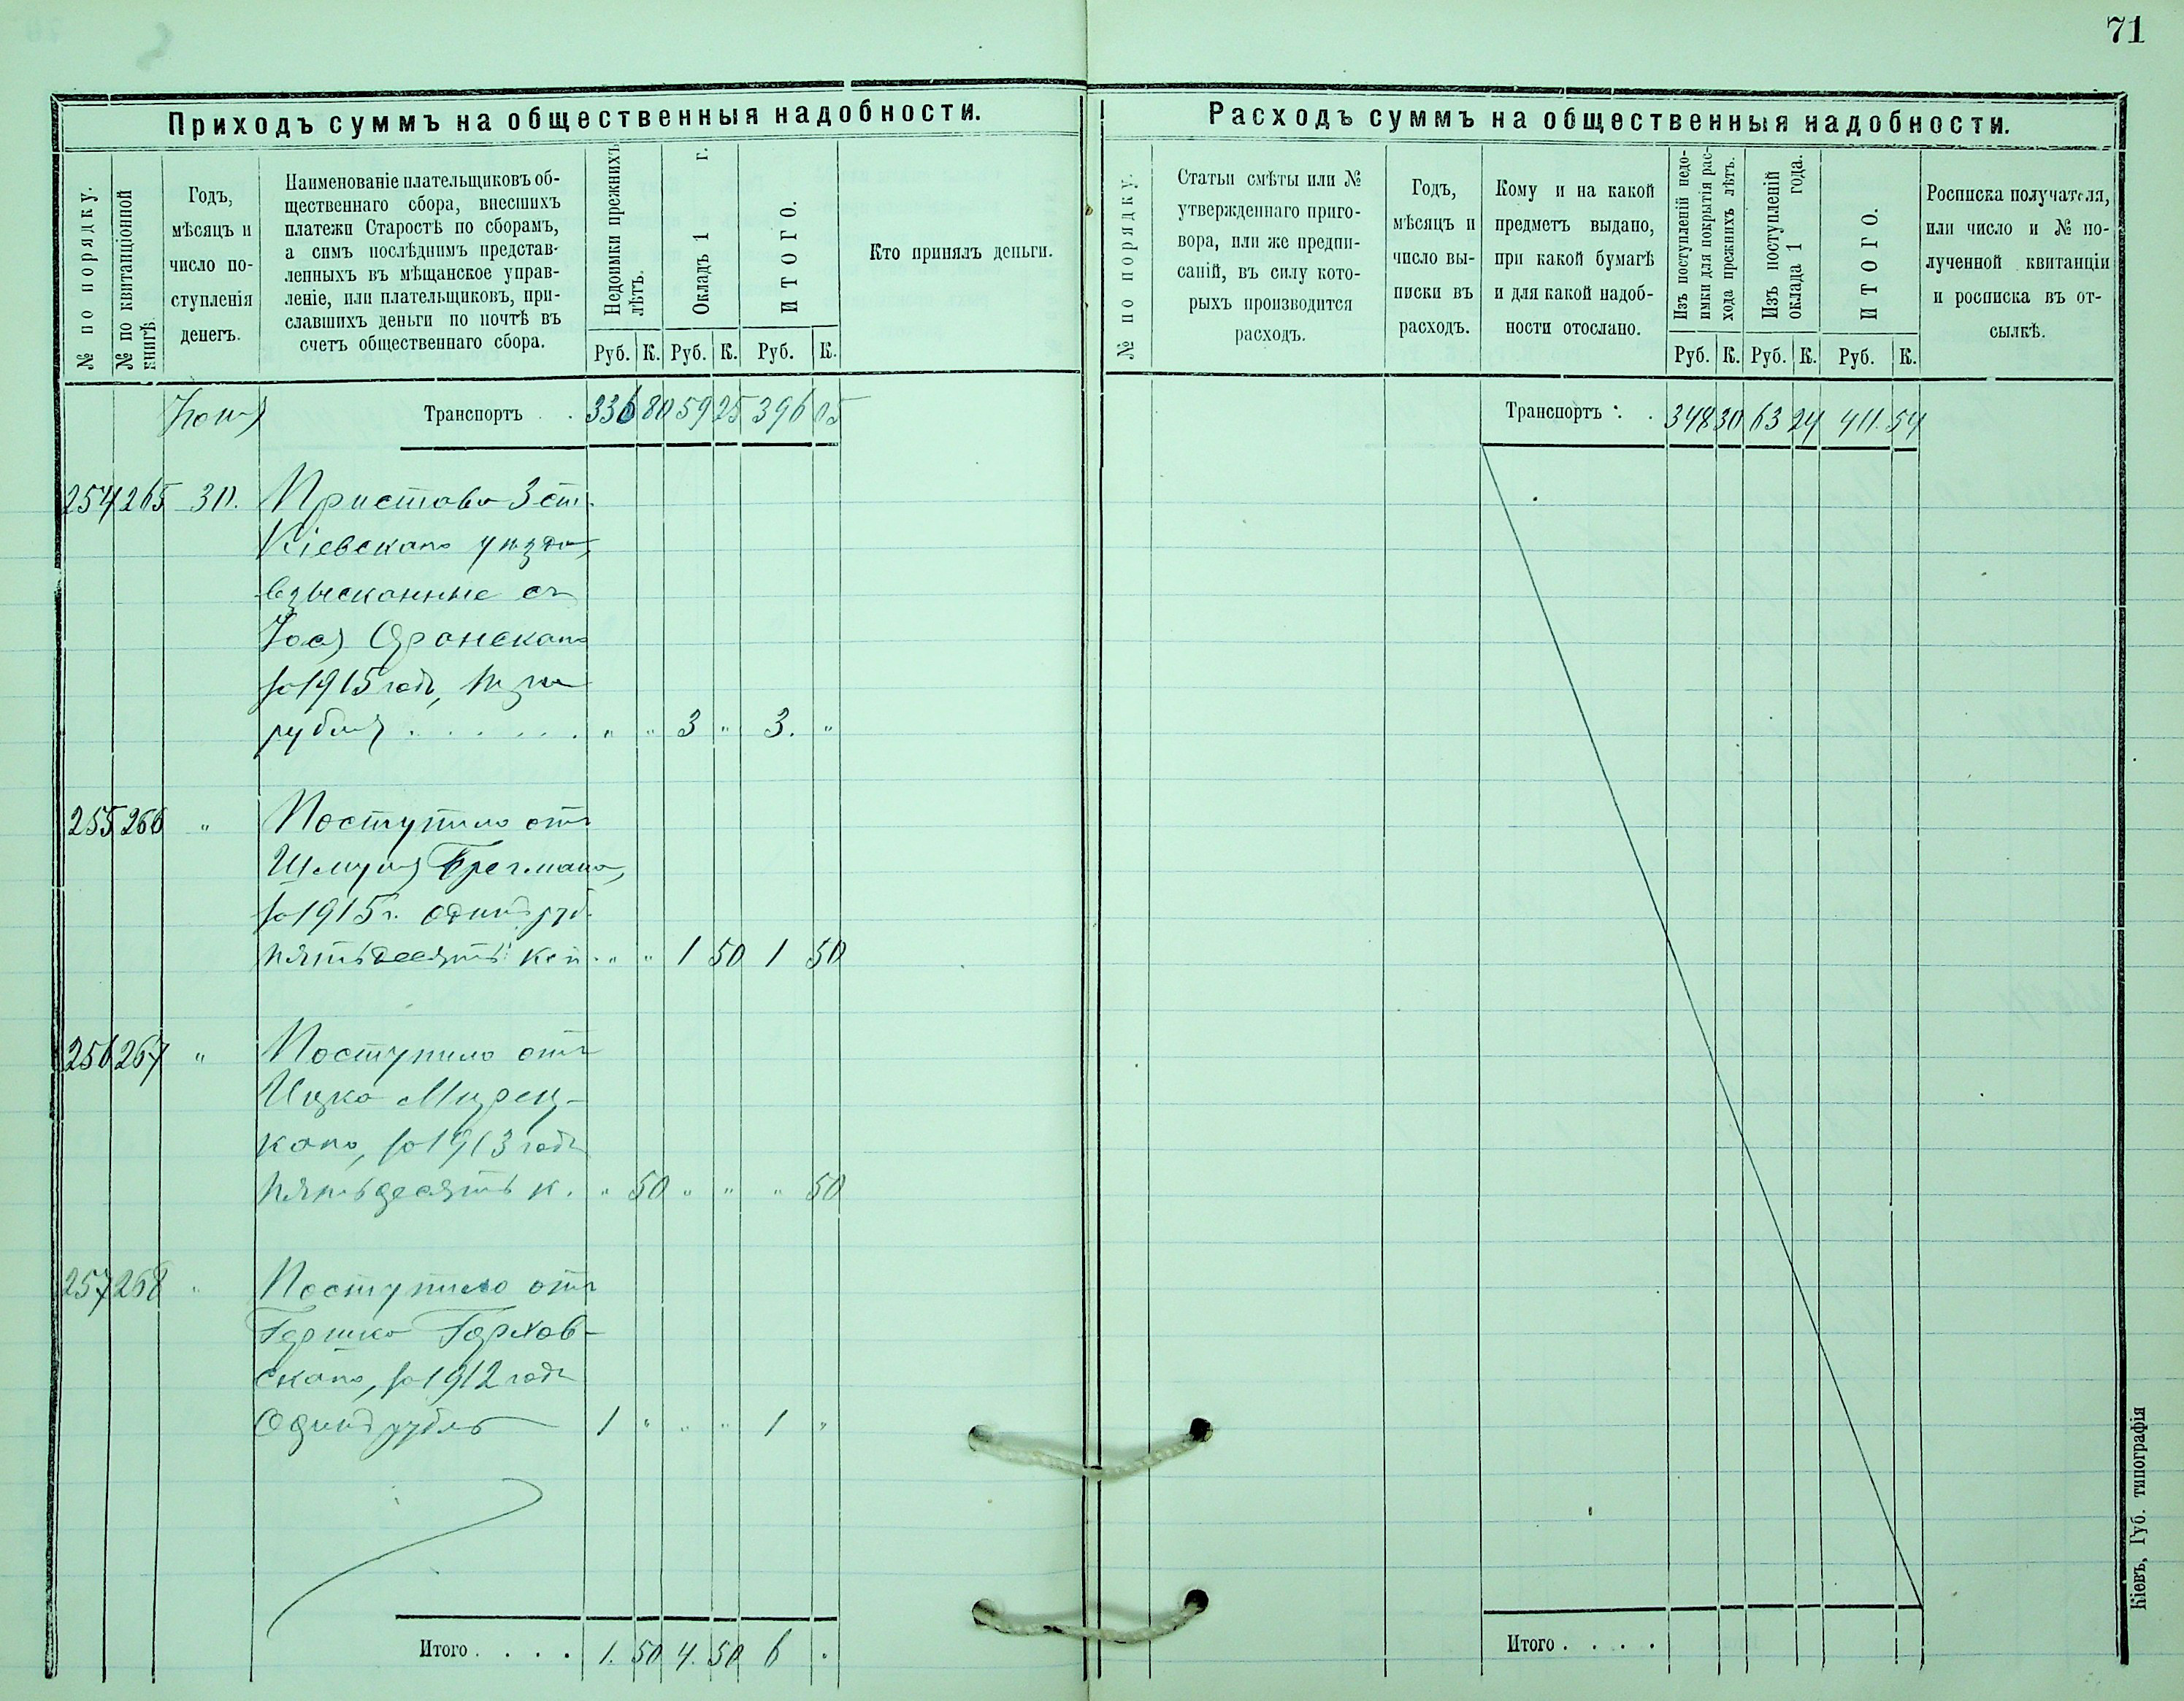 71
Приходъ суммъ на общественныя надобности.
№ по порядку.
№ по квитанціонной
книгѣ.
Годъ,
мѣсяцъ и
число по-
ступленія
денегъ.
Наименованіе плательщиковъ об-
щественнаго сбора, внесшихъ
платежи Старостѣ по сборамъ,
а симъ послѣднимъ представ-
ленныхъ въ мѣщанское управ-
леніе, или плательщиковъ, при-
славшихъ деньги по почтѣ въ
счетъ общественнаго сбора.
Недоимки прежнихъ
лѣтъ.
Окладъ 1 г.
ИТОГО.
Руб. К. Руб. К. Руб. К.
Кто принялъ деньги.
Транспортъ . . 336 80 59 25 396 05
254 265 30. Пристава 3 ст.
Кіевскаго уѣзда,
взысканные съ
за 1915 годъ, три
рубля . . . . . . " " 3 " 3. "
255 266 " Поступило отъ
Шмуля Брегмана,
за 1915 г. одинъ руб.
пятьдесятъ коп. " " 1 50 1 50
256 267 " Поступило отъ
Ицка Мирец-
каго, за 1913 годъ
пятьдесятъ к. " 50 " " " 50
257 268 " Поступило отъ
Гершка
скаго, за 1912 годъ
Одинъ рубль 1 " " " 1 "
Итого . . . . 1. 50 4. 50 6 .
Расходъ суммъ на общественныя надобности.
№ по порядку.
Статьи смѣты или №
утвержденнаго приго-
вора, или же предпи-
саній, въ силу кото-
рыхъ производится
расходъ.
Годъ,
мѣсяцъ и
число вы-
писки въ
расходъ.
Кому и на какой
предметъ выдано,
при какой бумагѣ
и для какой надоб-
ности отослано.
Изъ поступленій недо-
имки для покрытія рас-
хода прежнихъ лѣтъ.
Изъ поступленій
оклада 1 года.
ИТОГО.
Руб. К. Руб. К. Руб. К.
Росписка получателя,
или число и № по-
лученной квитанціи
и росписка въ от-
сылкѣ.
Транспортъ . . 348 30 63 24 411. 54
Итого . . . .
Кіевъ, Губ. типографія